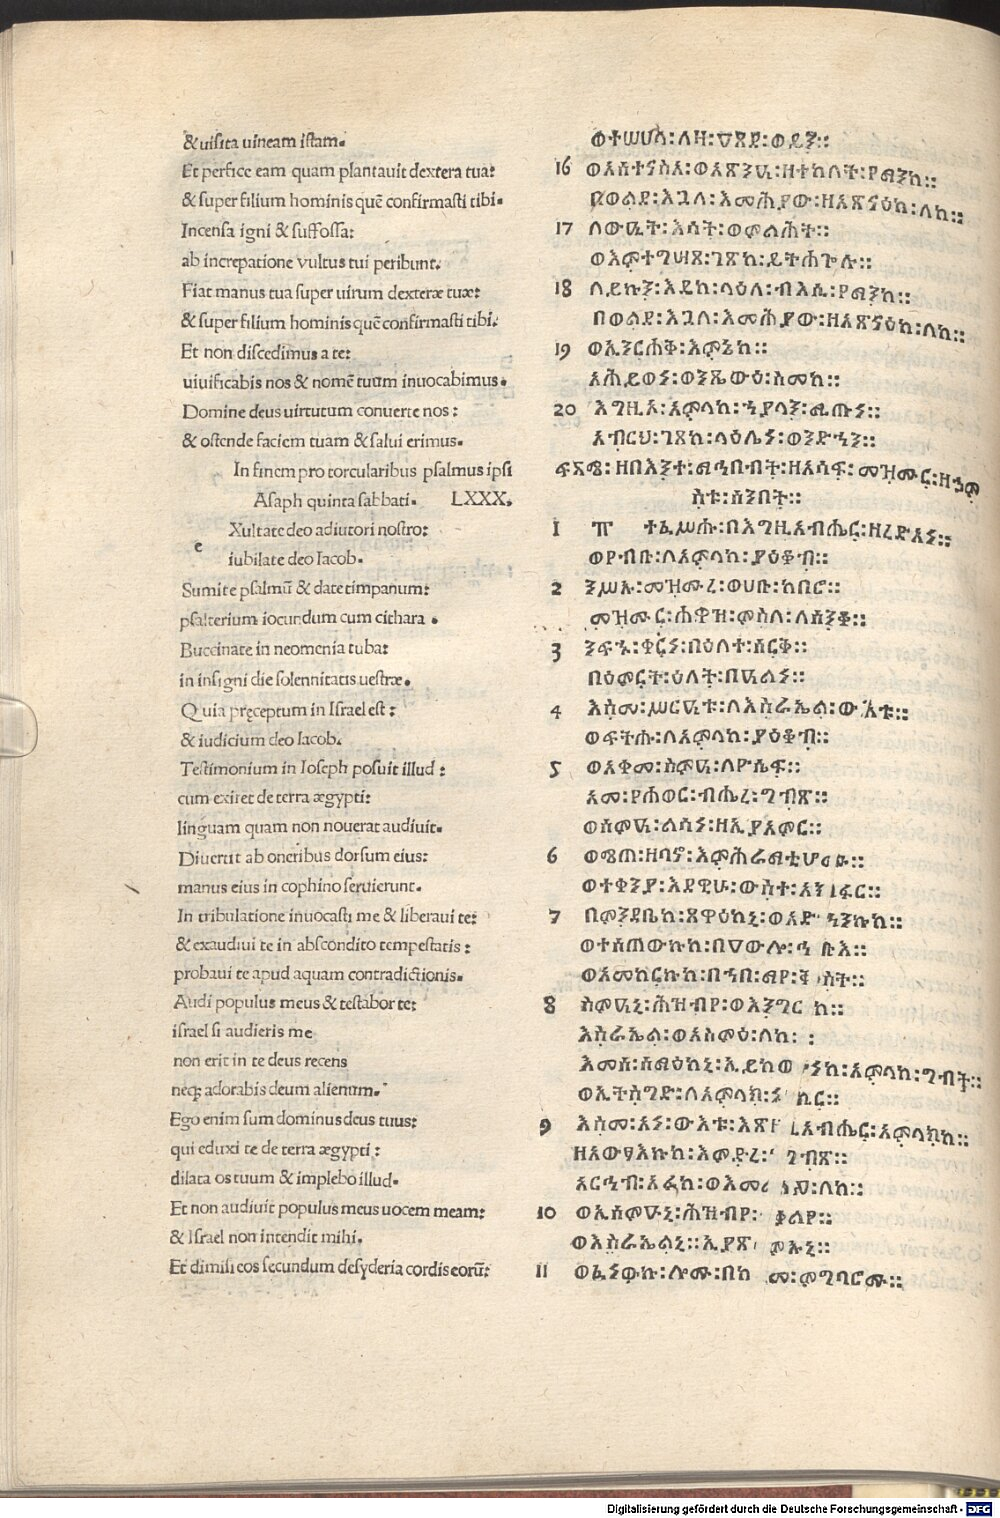 & uisita uineam istam.
Et perfice eam quam plantauit dextera tua:
& super filium hominis quē confirmasti tibi.
Incensa igni & suffossa:
ab increpatione vultus tui peribunt.
Fiat manus tua super uirum dexteræ tuæ:
& super filium hominis quē confirmasti tibi.
Et non discedimus a te:
uiuificabis nos & nomē tuum inuocabimus.
Domine deus uirtutum conuerte nos:
& ostende faciem tuam & salui erimus.
In finem pro torcularibus psalmus ipsi
Asaph quinta sabbati. LXXX.
e Xultate deo adiutori nostro:
iubilate deo Iacob.
Sumite psalmū & date timpanum:
psalterium iocundum cum cithara.
Buccinate in neomenia tuba:
in insigni die solennitatis uestræ.
Quia pręceptum in Israel est:
& iudicium deo Iacob.
Testimonium in Ioseph posuit illud:
cum exiret de terra ægypti:
linguam quam non nouerat audiuit.
Diuertit ab oneribus dorsum eius:
manus eius in cophino seruierunt.
In tribulatione inuocasti me & liberaui te:
& exaudiui te in abscondito tempestatis:
probaui te apud aquam contradictionis.
Audi populus meus & testabor te:
israel si audieris me
non erit in te deus recens
neq; adorabis deum alienum.
Ego enim sum dominus deus tuus:
qui eduxi te de terra ægypti:
dilata os tuum & implebo illud.
Et non audiuit populus meus uocem meam:
& Israel non intendit mihi.
Et dimisi eos secundum desyderia cordis eorū:
ወተሠሀላ፡ለዛ፡ዐጸደ፡ወይን፡፡
16 ወአጽንዓ፡ዘተከለት፡የማንከ፡፡
በወልደ፡እጓለ፡እመሕያው፡ዘአጽናዕከ፡ለከ፡፡
17 ለውዒት፡እሳት፡ወምልሕት፡፡
ወእምተግሣጸ፡ገጽከ፡ይትሐጐሉ፡፡
18 ለይኩን፡እዴከ፡ላዕለ፡ብእሲ፡የማንከ፡፡
በወልደ፡እጓለ፡እመሕያው፡ዘአጽናዕከ፡ለከ፡፡
19 ወኢንርሐቅ፡እምኔከ፡፡
አሕይወነ፡ወንጼውዕ፡ስመከ፡፡
20 እግዚኦ፡አምላከ፡ኀያላን፡ሚጡነ፡፡
አብርህ፡ገጸከ፡ላዕሌነ፡ወንድኅን፡፡
ፍጻሜ፡ዘበእንተ፡ማኅበብት፡ዘአሳፍ፡መዝሙር፡ዘኃም
ስቱ፡ሰንበት፡፡
1 ፹ ተፈሥሑ፡በእግዚአብሔር፡ዘረድአነ፡፡
ወየብቡ፡ለአምላከ፡ያዕቆብ፡፡
2 ንሥኡ፡መዝሙረ፡ወሀቡ፡ከበሮ፡፡
መዝሙር፡ሐዋዝ፡ምስለ፡ለሰንቆ፡፡
3 ንፍኁ፡ቀርነ፡በዕለተ፡ሰርቅ፡፡
በዕምርት፡ዕለት፡በዓልነ፡፡
4 እስመ፡ሥርዓቱ፡ለእስራኤል፡ውእቱ፡፡
ወፍትሑ፡ለአምላከ፡ያዕቆብ፡፡
5 ወአቀመ፡ስምዓ፡ለዮሴፍ፡፡
አመ፡የሐወር፡ብሔረ፡ግብጽ፡፡
ወሰምዓ፡ልሳነ፡ዘኢያአምር፡፡
6 ወሜጠ፡ዘባኖ፡
ወተቀንያ፡እደዊሁ፡ውስተ፡
7 በምንዳቤከ፡ጸዋዕከኒ፡ወአድኀንኩከ፡፡
ወተሰጠውኩከ፡በዐውሎ፡ኅቡእ፡፡
ወአመከርኩከ፡በኀበ፡ማየ፡
8 ስምዓኒ፡ሕዝብየ፡ወእንግርከ፡፡
እስራኤል፡ወአስምዕ፡ለከ፡፡
እመሰ፡ሰማዕከኒ፡አምላከ፡ግብት፡፡
ወኢትስግድ፡ለአምላክ፡ነኪር፡፡
9 እስመ፡አነ፡ውእቱ፡እግዚአብሔር፡አምላክከ፡፡
ዘአውፃእኩከ፡እምድረ፡ግብጽ፡፡
አርኅብ፡አፈከ፡ለከ፡፡
10 ወኢሰምዑኒ፡ሕዝብየ፡ቃልየ፡፡
ወእስራኤልኒ፡፡ኢያጽምኡኒ፡፡
11 ወፈነውኩ፡ሎሙ፡በከመ፡ምግባሮሙ፡፡
Digitalisierung gefördert durch die Deutsche Forschungsgemeinschaft - DFG